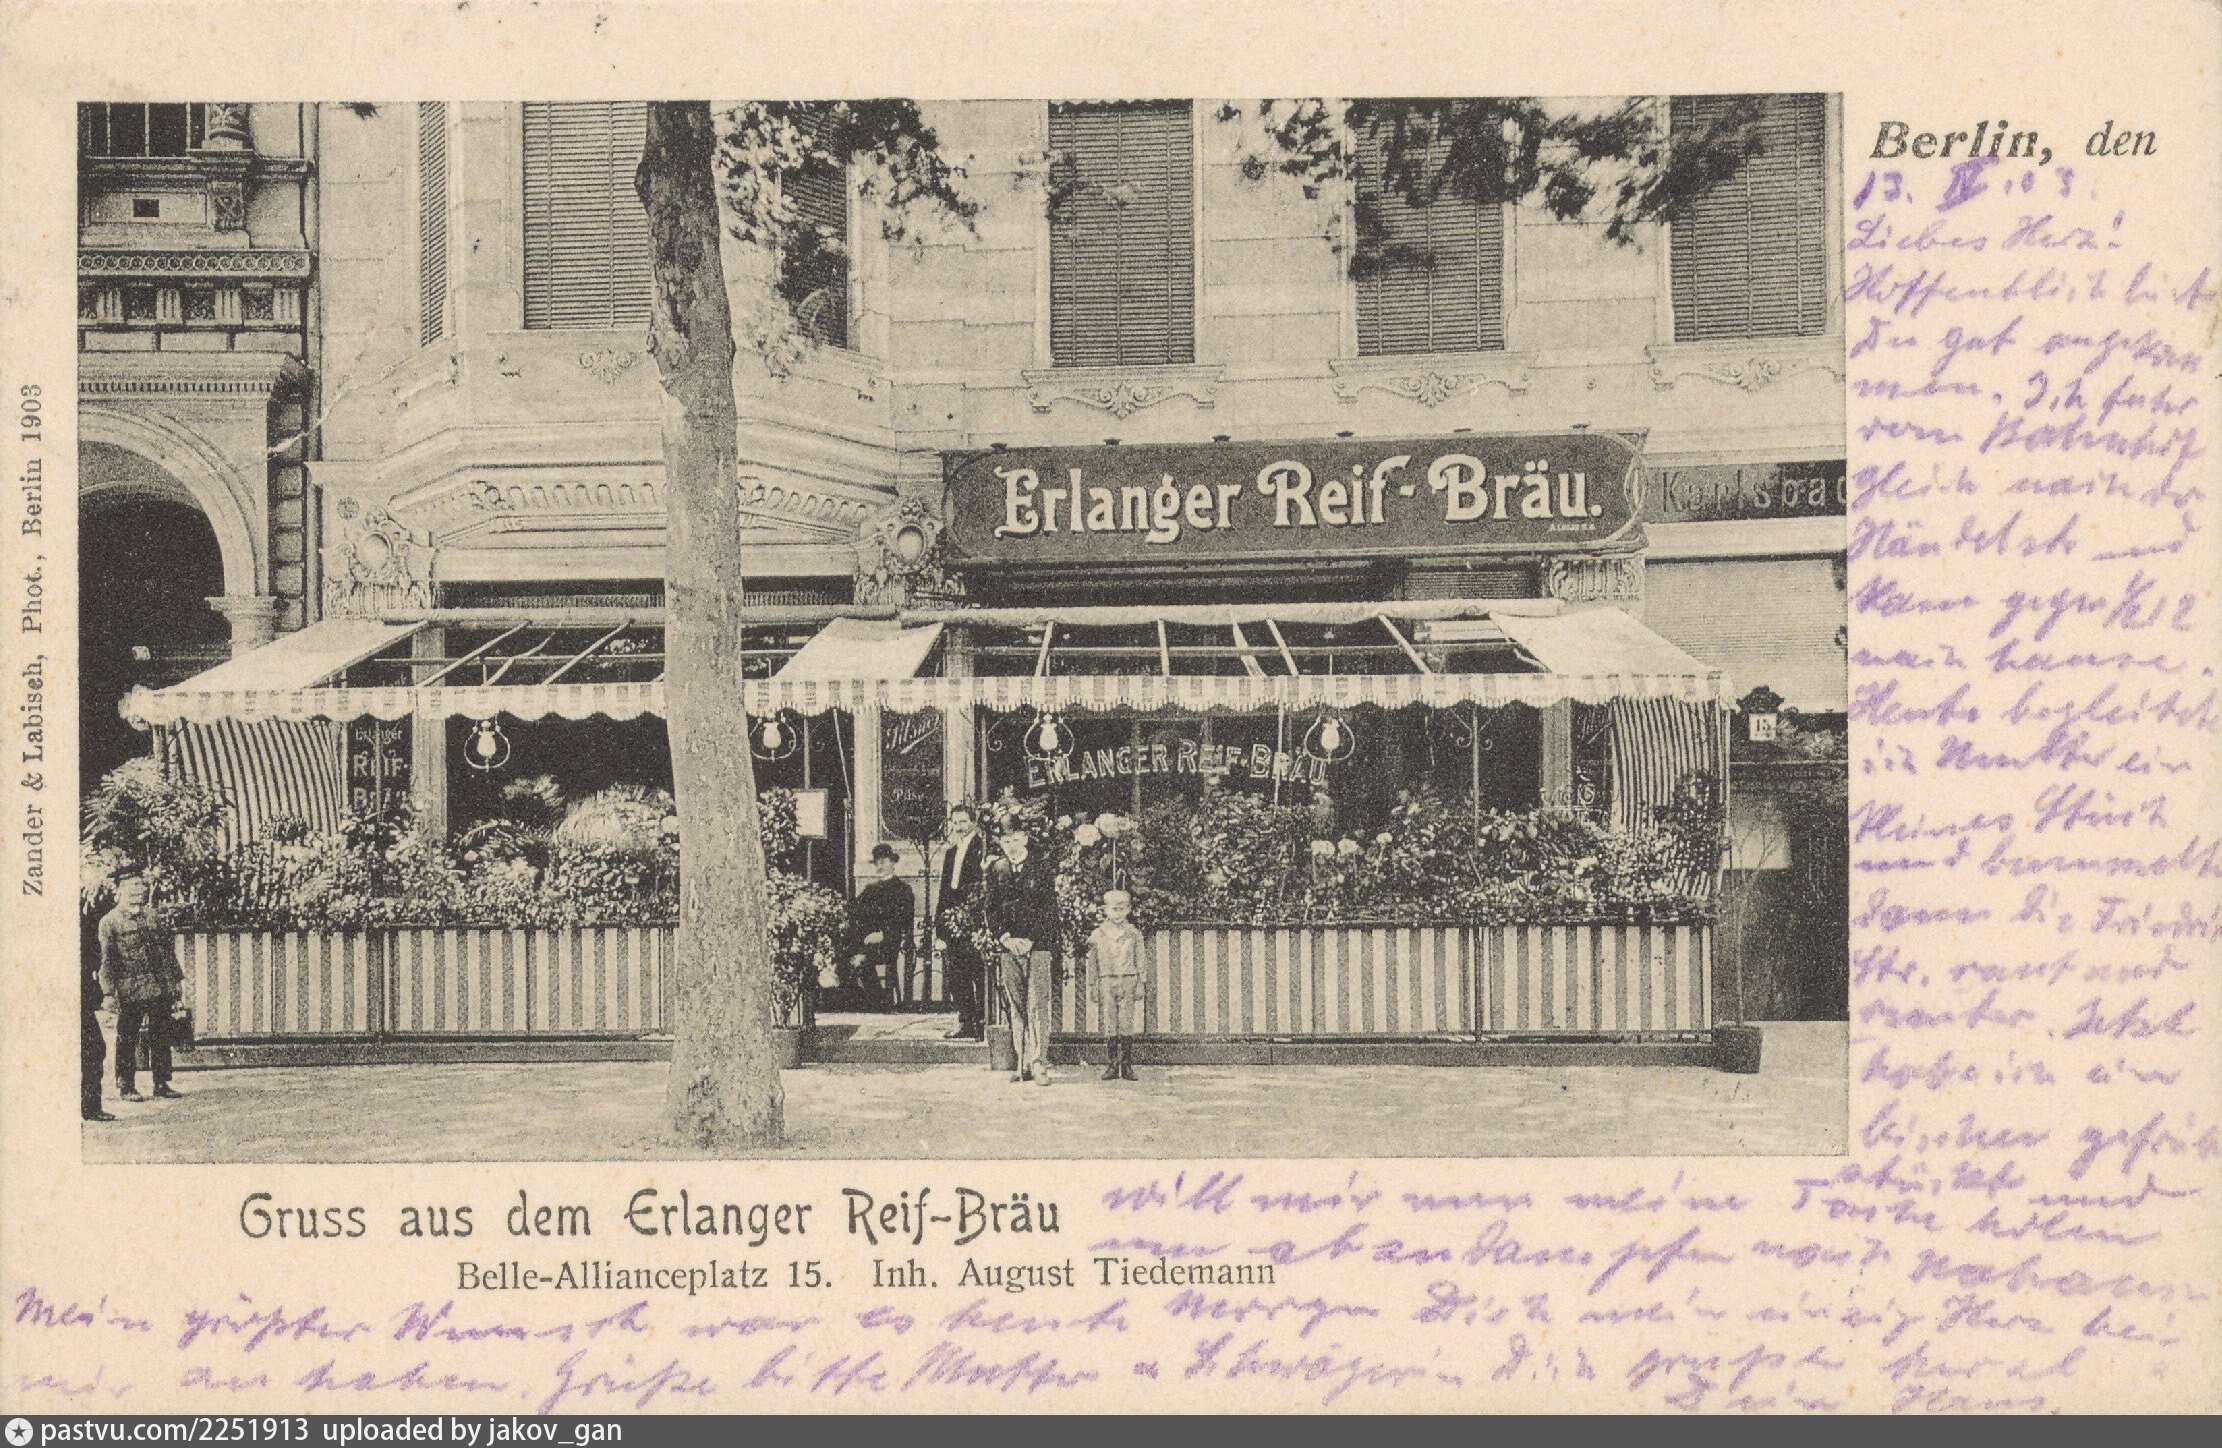 Berlin, den
13. IV. 03.
Liebes Herz!
Hoffentlich bist
Du gut angekom
men. Ich fuhr
vom Bahnhof
gleich nach der
Händelstr. und
kam gegen ½12
nach hause.
Heute begleitete
ich Mutter ein
kleines Stück
und bummelte
dann die Friedrich
str. rauf und
runter. Jetzt
habe ich ein
bischen gefrüh
stückt und
will mir nun meine holen
und nach
Mein größter Wunsch war es heute Morgen Dich mein einzig Herz bei
mir zu haben. Grüße bitte Mutter u Schwägerin Dich
Dein Hans.
Erlanger Reif-Bräu.
Erlanger
REIF-
BRÄU
ERLANGER REIF-BRÄU
15
Gruss aus dem Erlanger Reif-Bräu
Belle-Allianceplatz 15. Inh. August Tiedemann
Zander & Labisch, Phot., Berlin 1903
pastvu.com/2251913 uploaded by jakov_gan